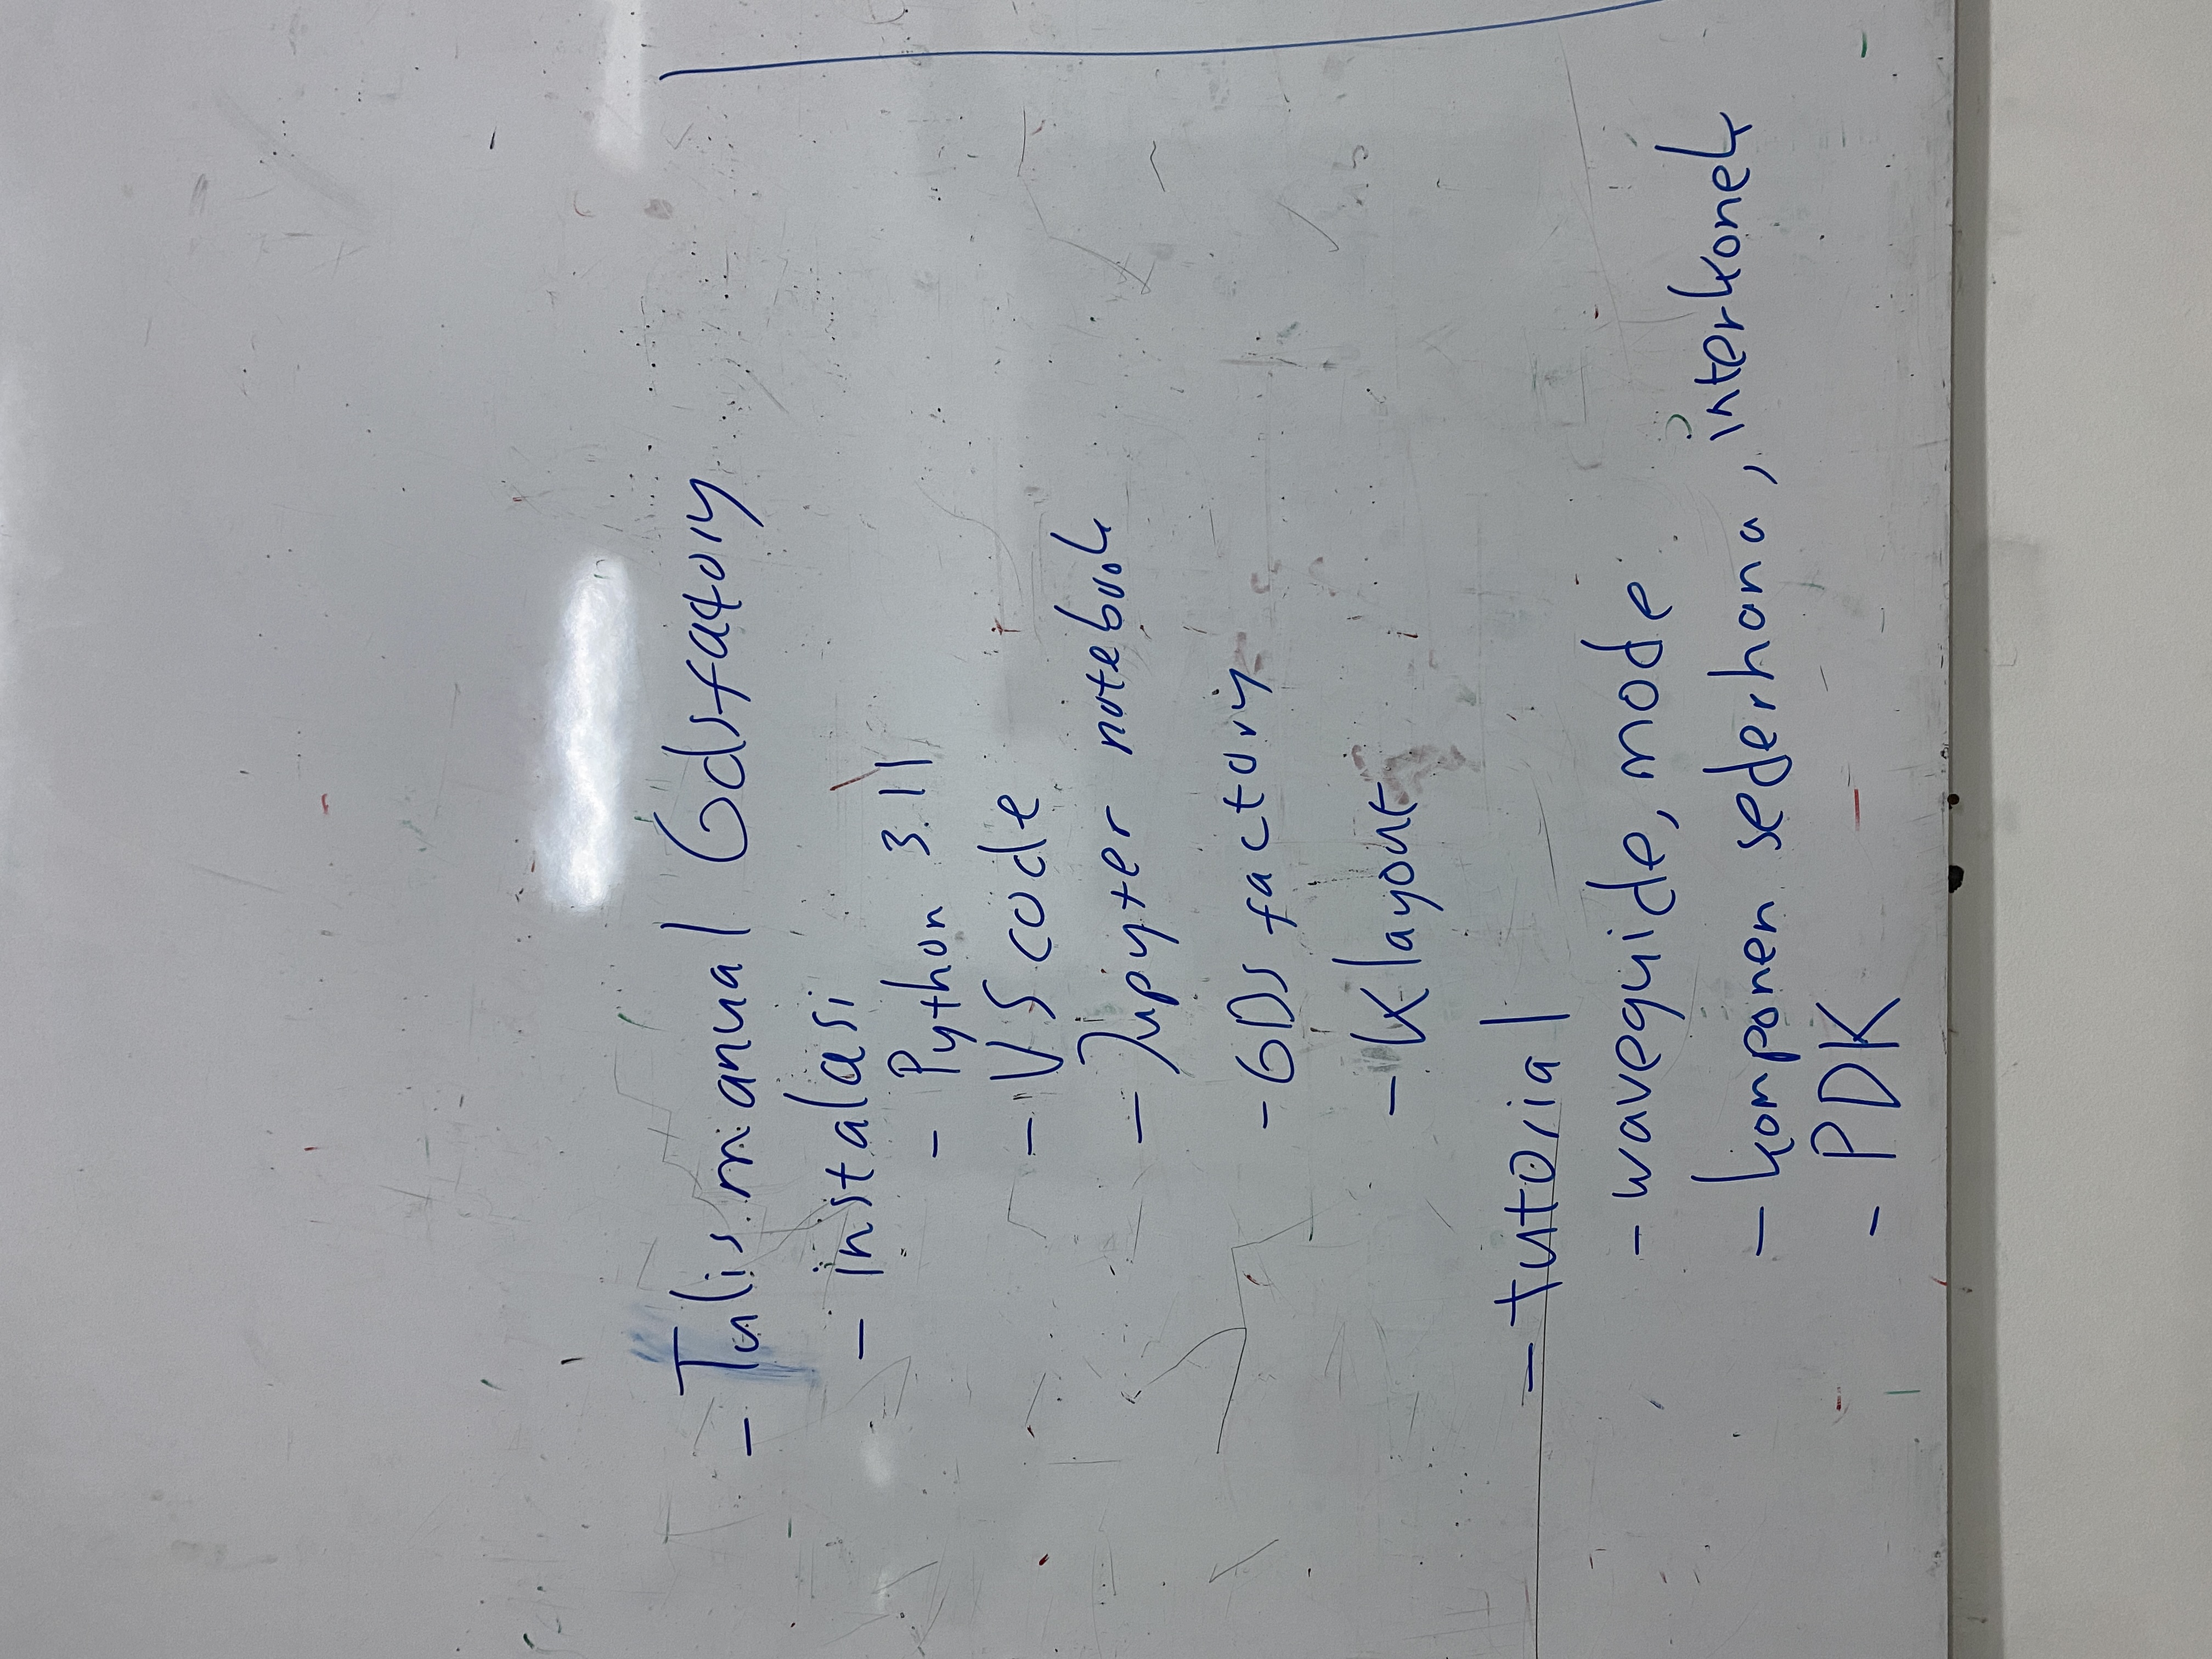 - Tulis manual Gdsfactory
- instalasi
- Python 3.11
- VS code
- Jupyter notebook
- GDS factory
- Klayout
- tutorial
- waveguide, mode
- komponen sederhana, interkonek
- PDK